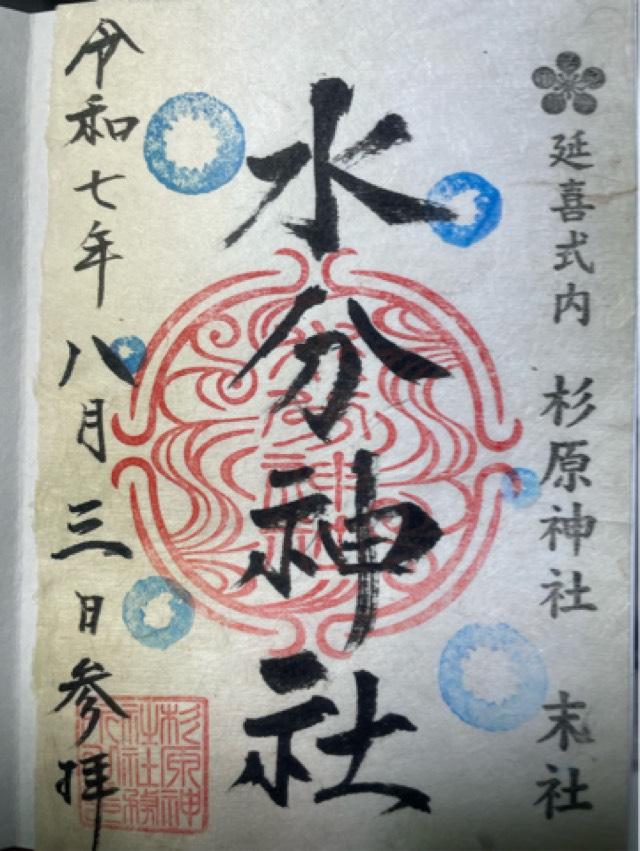 延喜式内 杉原神社 末社
水分神社
令和七年八月三日参拝
杉原神
社社務